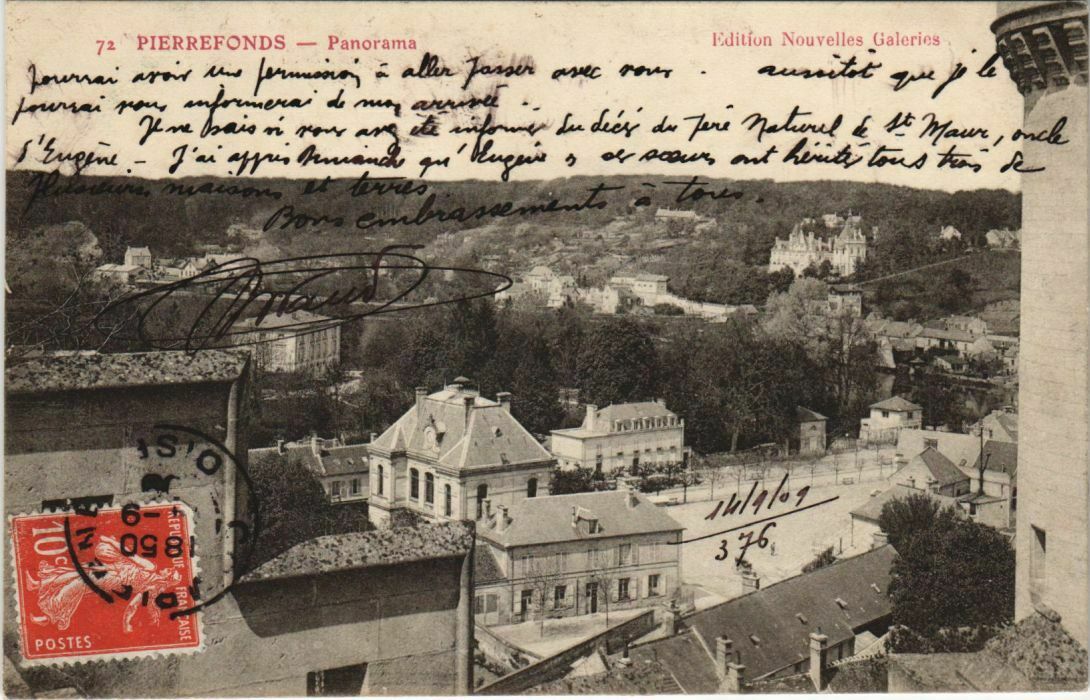 72 PIERREFONDS — Panorama
Edition Nouvelles Galeries
pourrai avoir une permission à aller passer avec vous. aussitôt que je le
pourrai vous informerai de mon arrivée..
Je ne sais si vous avez été informés du décès du père Naturel de St Maur, oncle
d'Eugène - J'ai appris dimanche qu'Eugène & ses sœurs ont hérité tous trois de
plusieurs maisons et terres.
Bons embrassements à tous.
14/9/09
376
OISE
8
9-9
18 50
REPUBLIQUE FRANÇAISE
10c
POSTES